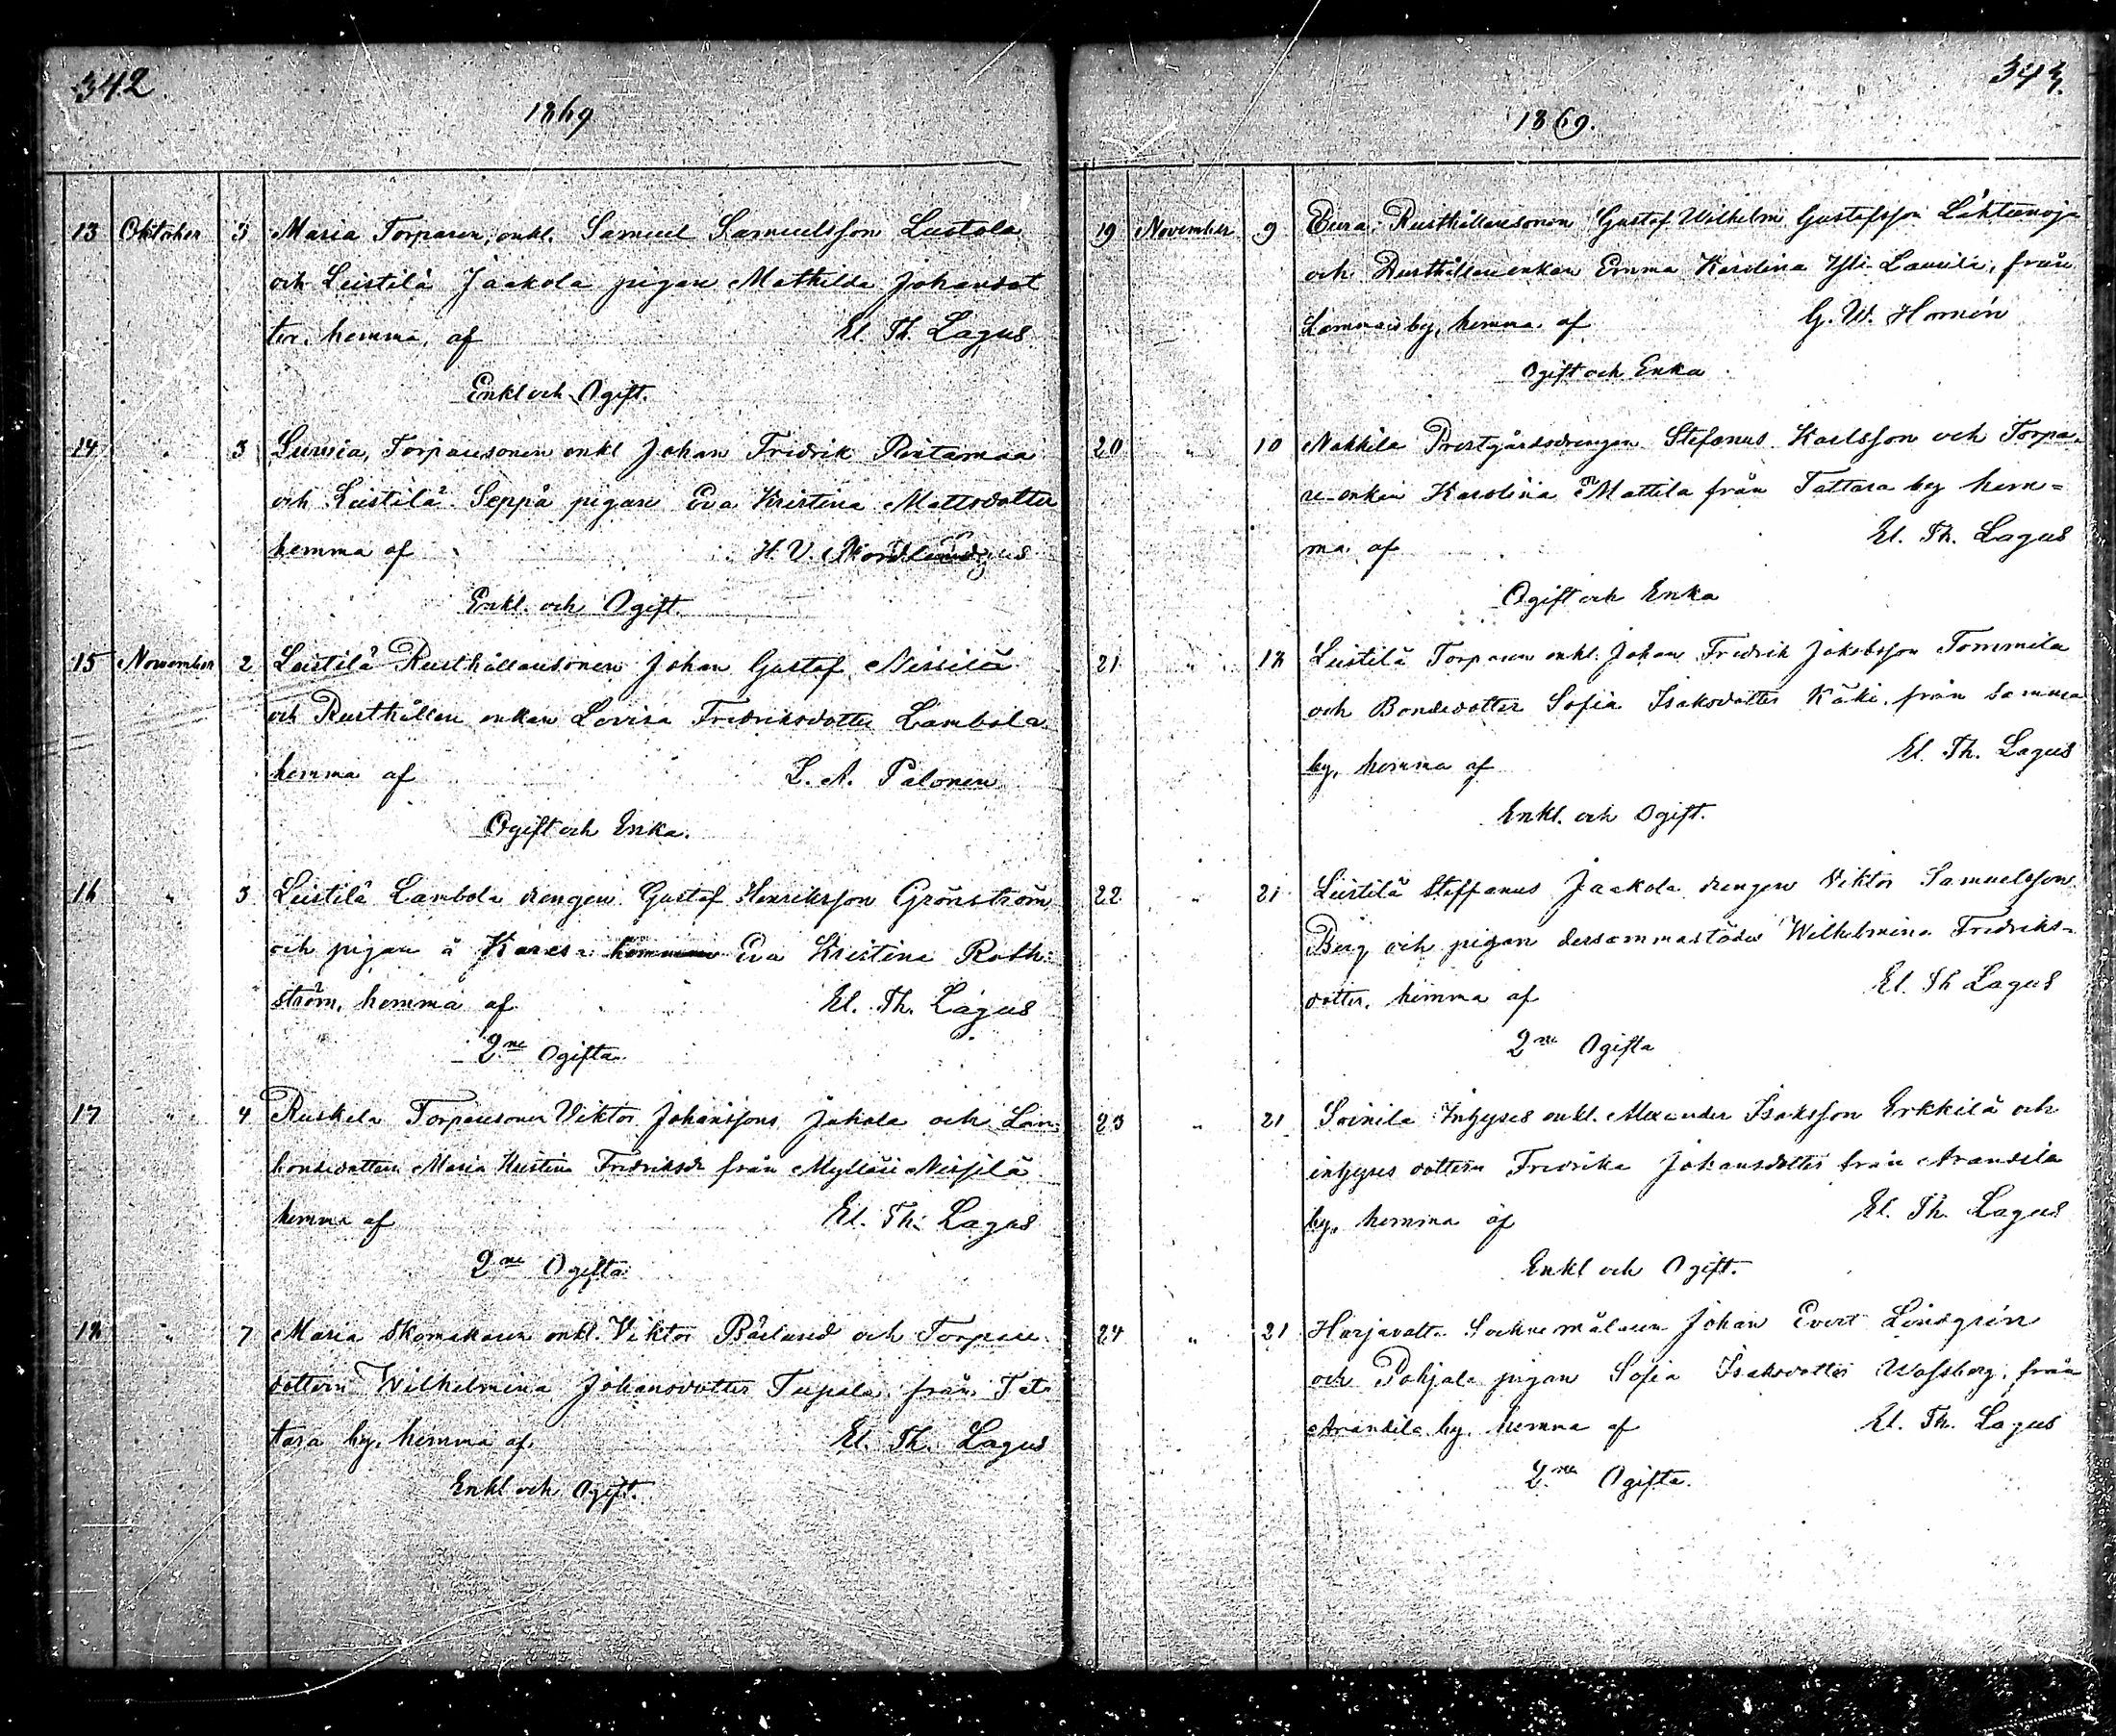 342
1869
13 Oktober 3 Maria Torparen, enkl. Samuel Samuelsson Lustola
och Leistilä Jaakola pigan Mathilda Johansdot
ter, hemma, af El. Th. Lagus
Enkl och Ogift.
14 " 3 Luvia, Torparesonen enkl Johan Fredrik
och Leistilä Seppä pigan Eva Kristina Mattsdotter
hemma af H. V.
Enkl. och Ogift.
15 November 2 Leistilä Rusthållaresonen Johan Gustaf Nissilä
och Rusthållare enkan Lovisa Fredriksdotter Lambola
hemma af L. A. Palonen
Ogift och Enka.
16 " 3 Leistilä Lambola drengen Gustaf Henriksson Grönström
och pigan å Eva Kristina Roth-
ström, hemma af El. Th. Lagus
2ne Ogifta
17 " 4 Ruskela Torparesonen Viktor Johanssons Jakola och Lan-
bondedottern Maria Kristina Fredriksdr från Nissilä
hemma af El. Th. Lagus
2ne Ogifta
18 " 7 Maria Skomakaren enkl. Viktor och Torpare
dottern Wilhelmina Johansdotter Tupala från Tat-
tara by, hemma af El. Th. Lagus
Enkl och Ogift.
343.
1869.
19 November 9 Eura, Rusthållaresonen Gustaf Wilhelm Gustafsson Lähteenoja
och Rusthållareenkan Emma Karolina Yli-Laurila, från
by, hemma af G. W. Hornén
Ogift och Enka
20 " 10 Nakkila Prestgårdsdrengen Stefanus Karlsson och Torpa-
re-enkan Karolina Mattila från Tattara by hem-
ma af El. Th. Lagus
Ogift och Enka
21 " 18 Leistilä Torparen enkl. Johan Fredrik Jakobsson Tommila
och Bondedotter Sofia Isaksdotter Käki, från samma
by, hemma af El. Th. Lagus
Enkl. och Ogift.
22 " 21 Leistilä Steffanus Jaakola drengen Viktor Samuelsson
Berg och pigan dersammastädes Wilhelmina Fredriks-
dotter, hemma af El. Th Lagus
2ne Ogifta
23 " 21 Soinila Inhyses enkl. Alexander Isaksson Erkkilä och
inhyses dottern Fredrika Johansdotter från Arandila
by, hemma af El. Th. Lagus
Enkl och Ogift.
24 " 21 Harjavalta Sockne målaren Johan Evert Lindgrén
och Pohjala pigan Sofia Isaksdotter Wassberg, från
Arandila by hemma af El. Th. Lagus
2ne Ogifta.